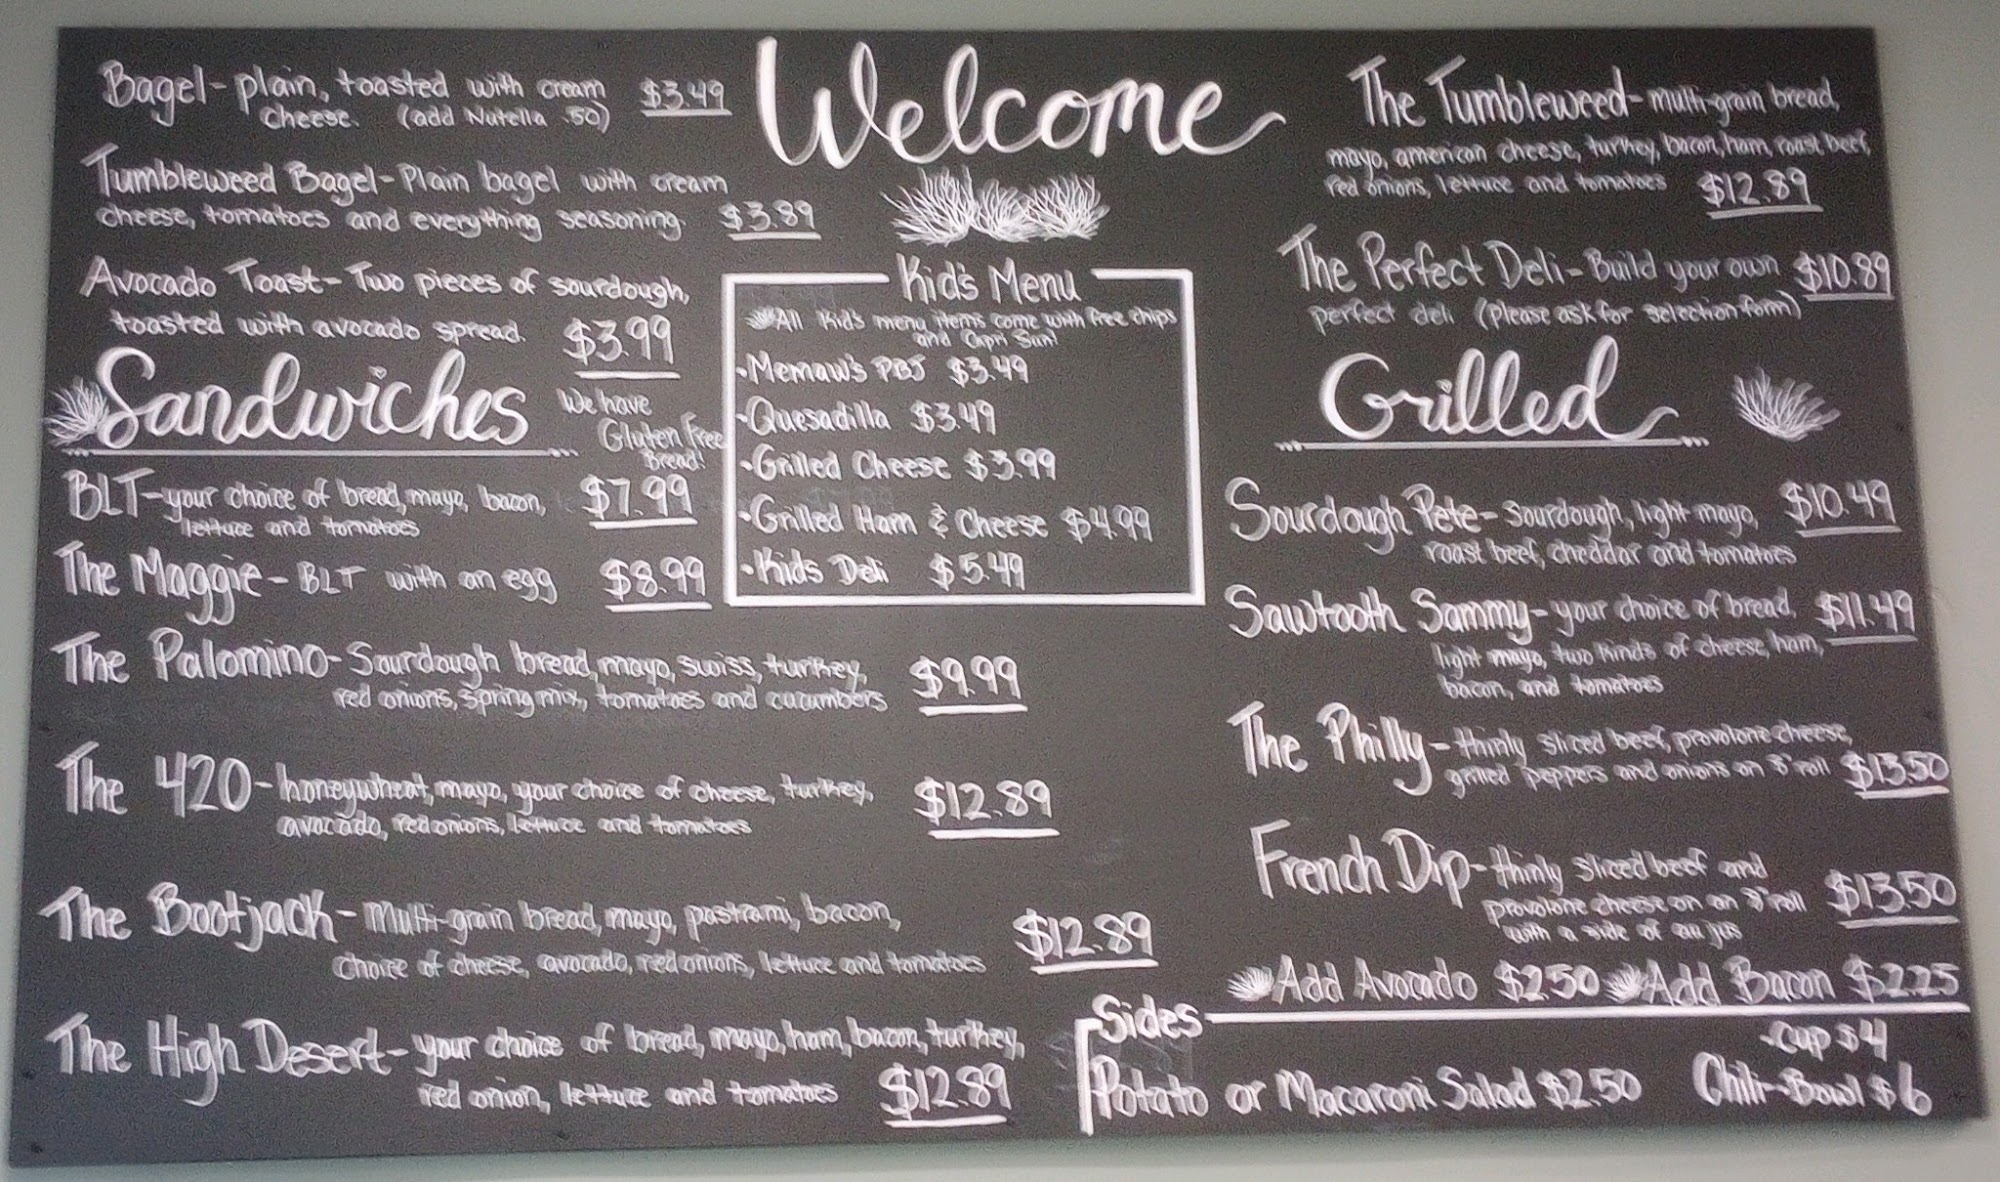 Welcome
Bagel-plain, toasted with cream $3.49
cheese. (add Nutella .50)
Tumbleweed Bagel-Plain bagel with cream
cheese, tomatoes and everything seasoning. $3.89
Avocado Toast-Two pieces of sourdough,
toasted with avocado spread. $3.99
Sandwiches
We have
Gluten Free
Bread!
BLT-your choice of bread, mayo, bacon, $7.99
lettuce and tomatoes
The Maggie-BLT with an egg $8.99
The Palomino-Sourdough bread, mayo, swiss, turkey, $9.99
red onions, spring mix, tomatoes and cucumbers
The 420-honeywheat, mayo, your choice of cheese, turkey, $12.89
avocado, red onions, lettuce and tomatoes
The Bootjack-Multi-grain bread, mayo, pastrami, bacon, $12.89
choice of cheese, avocado, red onions, lettuce and tomatoes
The High Desert-your choice of bread, mayo, ham, bacon, turkey,
red onion, lettuce and tomatoes $12.89
Kid's Menu
All Kid's menu items come with free chips
and Capri Sun!
•Memaw's PBJ $3.49
•Quesadilla $3.49
•Grilled Cheese $3.99
•Grilled Ham & Cheese $4.99
•Kids Deli $5.49
The Tumbleweed-multi-grain bread,
mayo, american cheese, turkey, bacon, ham, roast beef,
red onions, lettuce and tomatoes $12.89
The Perfect Deli-Build your own $10.89
perfect deli (please ask for selection form)
Grilled
Sourdough Pete-Sourdough, light mayo, $10.49
roast beef, cheddar and tomatoes
Sawtooth Sammy-your choice of bread, $11.49
light mayo, two kinds of cheese, ham,
bacon, and tomatoes
The Philly-thinly sliced beef, provolone cheese,
grilled peppers and onions on 8" roll $13.50
French Dip-thinly sliced beef and
provolone cheese on an 8" roll $13.50
with a side of au jus
Add Avocado $2.50 Add Bacon $2.25
Sides
Potato or Macaroni Salad $2.50
-Cup $4
Chili-Bowl $6